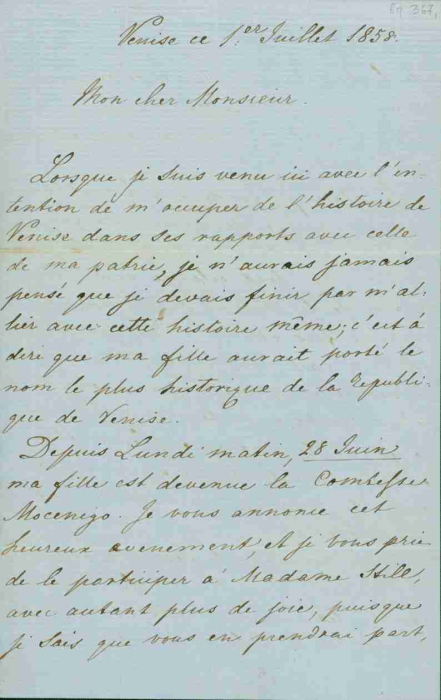 Eq 367,
Venise ce 1:er Juillet 1858.
Mon cher Monsieur.
Lorsque je suis venu ici avec l'in-
tention de m'occuper de l'histoire de
Venise dans ses rapports avec celle
de ma patrie, je n'aurais jamais
pensé que je devais finir par m'al-
lier avec cette histoire même; c'est à
dire que ma fille aurait porté le
nom le plus historique de la Republi-
que de Venise.
Depuis Lundi matin, 28 Juin
ma fille est devenue la Comtesse
Mocenigo. Je vous annonce cet
heureux evenement, et je vous prie
de le participer à Madame Hill,
avec autant plus de joie, puisque
je sais que vous en prendrai part,